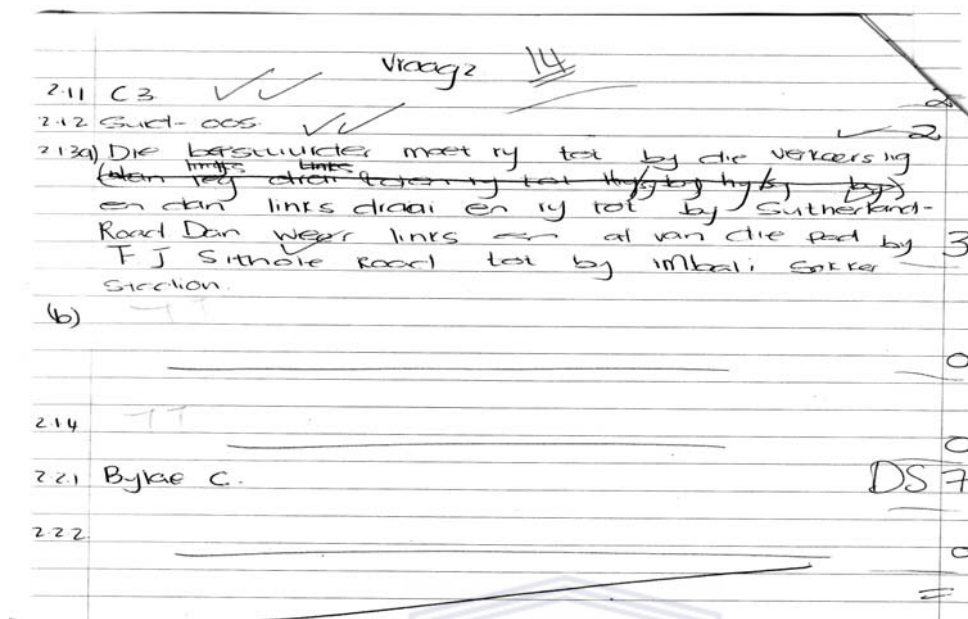 Vraag 2 14
2.1.1 C3 2
2.1.2 Suid-oos. 2
2.1.3a) Die bestuurder moet ry tot by die verkeerslig
en dan links draai en ry tot by Sutherland-
Road Dan weer links en af van die pad by 3
F J Sithole Road tot by IMbali Sokker
Stadion.
(b)
0
2.1.4
0
2.2.1 Bylae C. DS 7
2.2.2
0